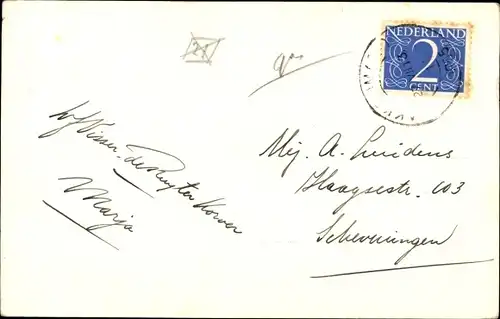 NEDERLAND
2
CENT
de Ruyter Korver
Marja
Mej. A. Luidens
Haagsestr. 103
Scheveningen